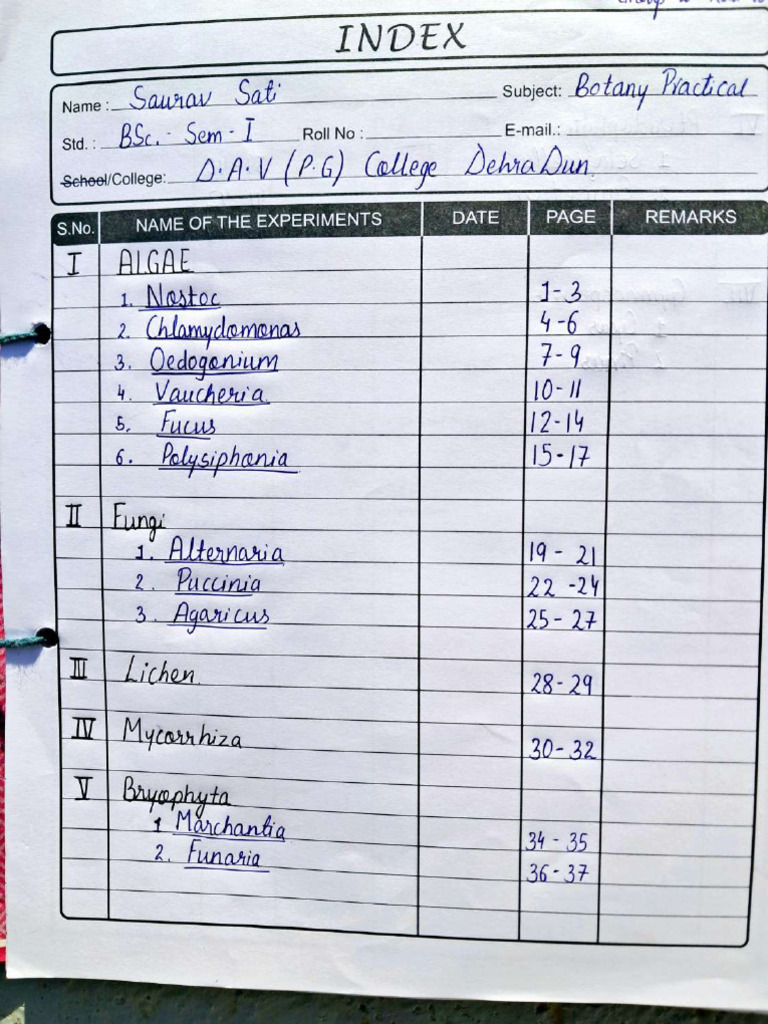 INDEX
Name : Saurav Sati Subject: Botany Practical
Std. : BSc. - Sem - I Roll No : E-mail.:
School/College: D.A.V (P.G) College DehraDun
S.No. NAME OF THE EXPERIMENTS DATE PAGE REMARKS
I ALGAE
1. Nostoc 1-3
2. Chlamydomonas 4-6
3. Oedogonium 7-9
4. Vaucheria 10-11
5. Fucus 12-14
6. Polysiphonia 15-17
II Fungi
1. Alternaria 19 - 21
2. Puccinia 22 -24
3. Agaricus 25 - 27
III Lichen 28-29
IV Mycorrhiza 30-32
V Bryophyta
1 Marchantia 34 - 35
2. Funaria 36-37